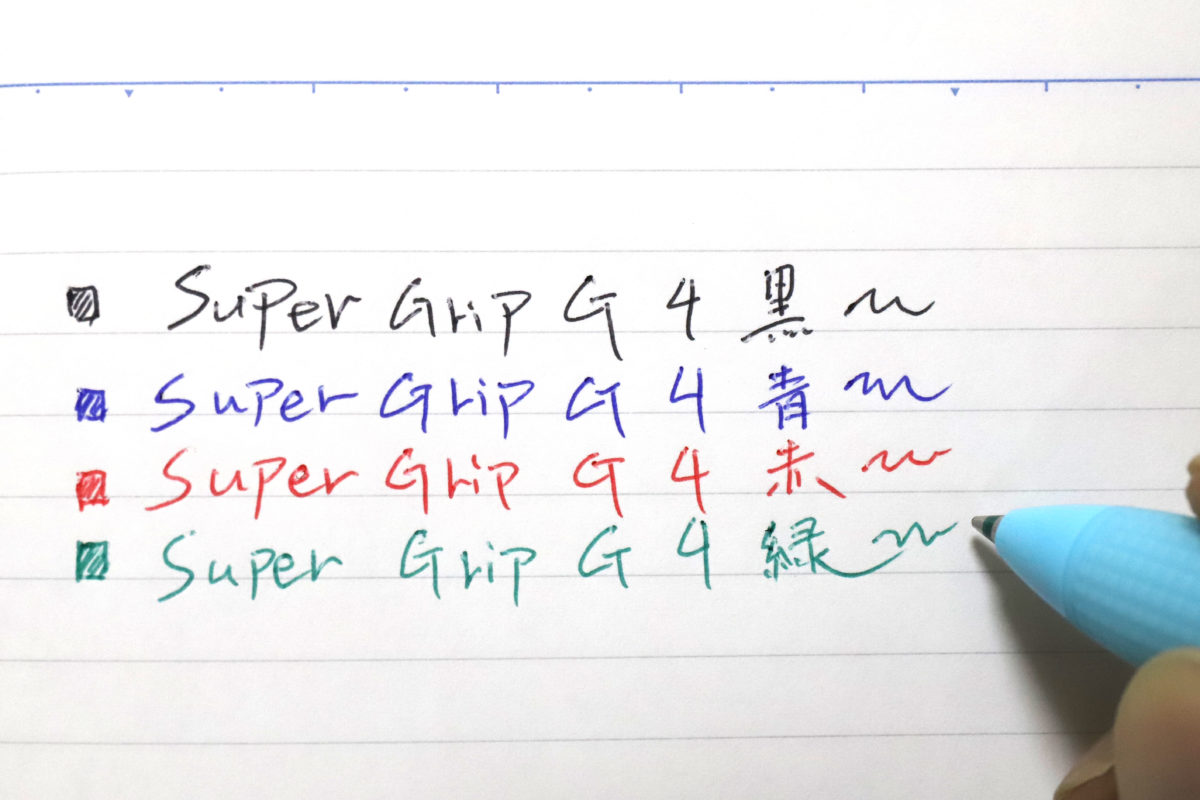 Super Grip G 4 黒
Super Grip G 4 青
Super Grip G 4 赤
Super Grip G 4 緑